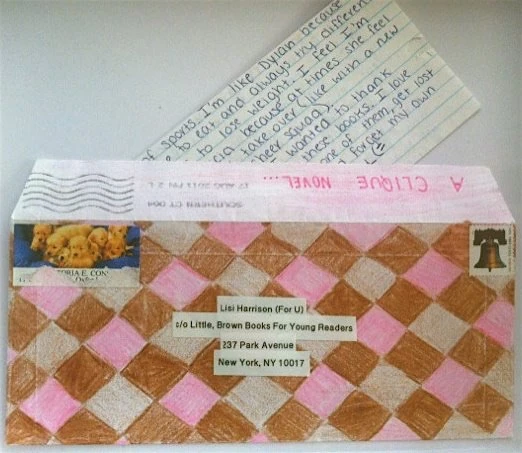 of sports. I'm like Dylan because
to eat and always try different
to lose weight. I feel I'm
because at times she feel
take over (like with a new
squad).
I wanted to thank
these books. I love
one of them, get lost
forget my own
A CLIQUE NOVEL...
SOUTHERN CT 064
17 AUG 2011 PM 2 L
TORIA E. CON
Lisi Harrison (For U)
c/o Little, Brown Books For Young Readers
237 Park Avenue
New York, NY 10017